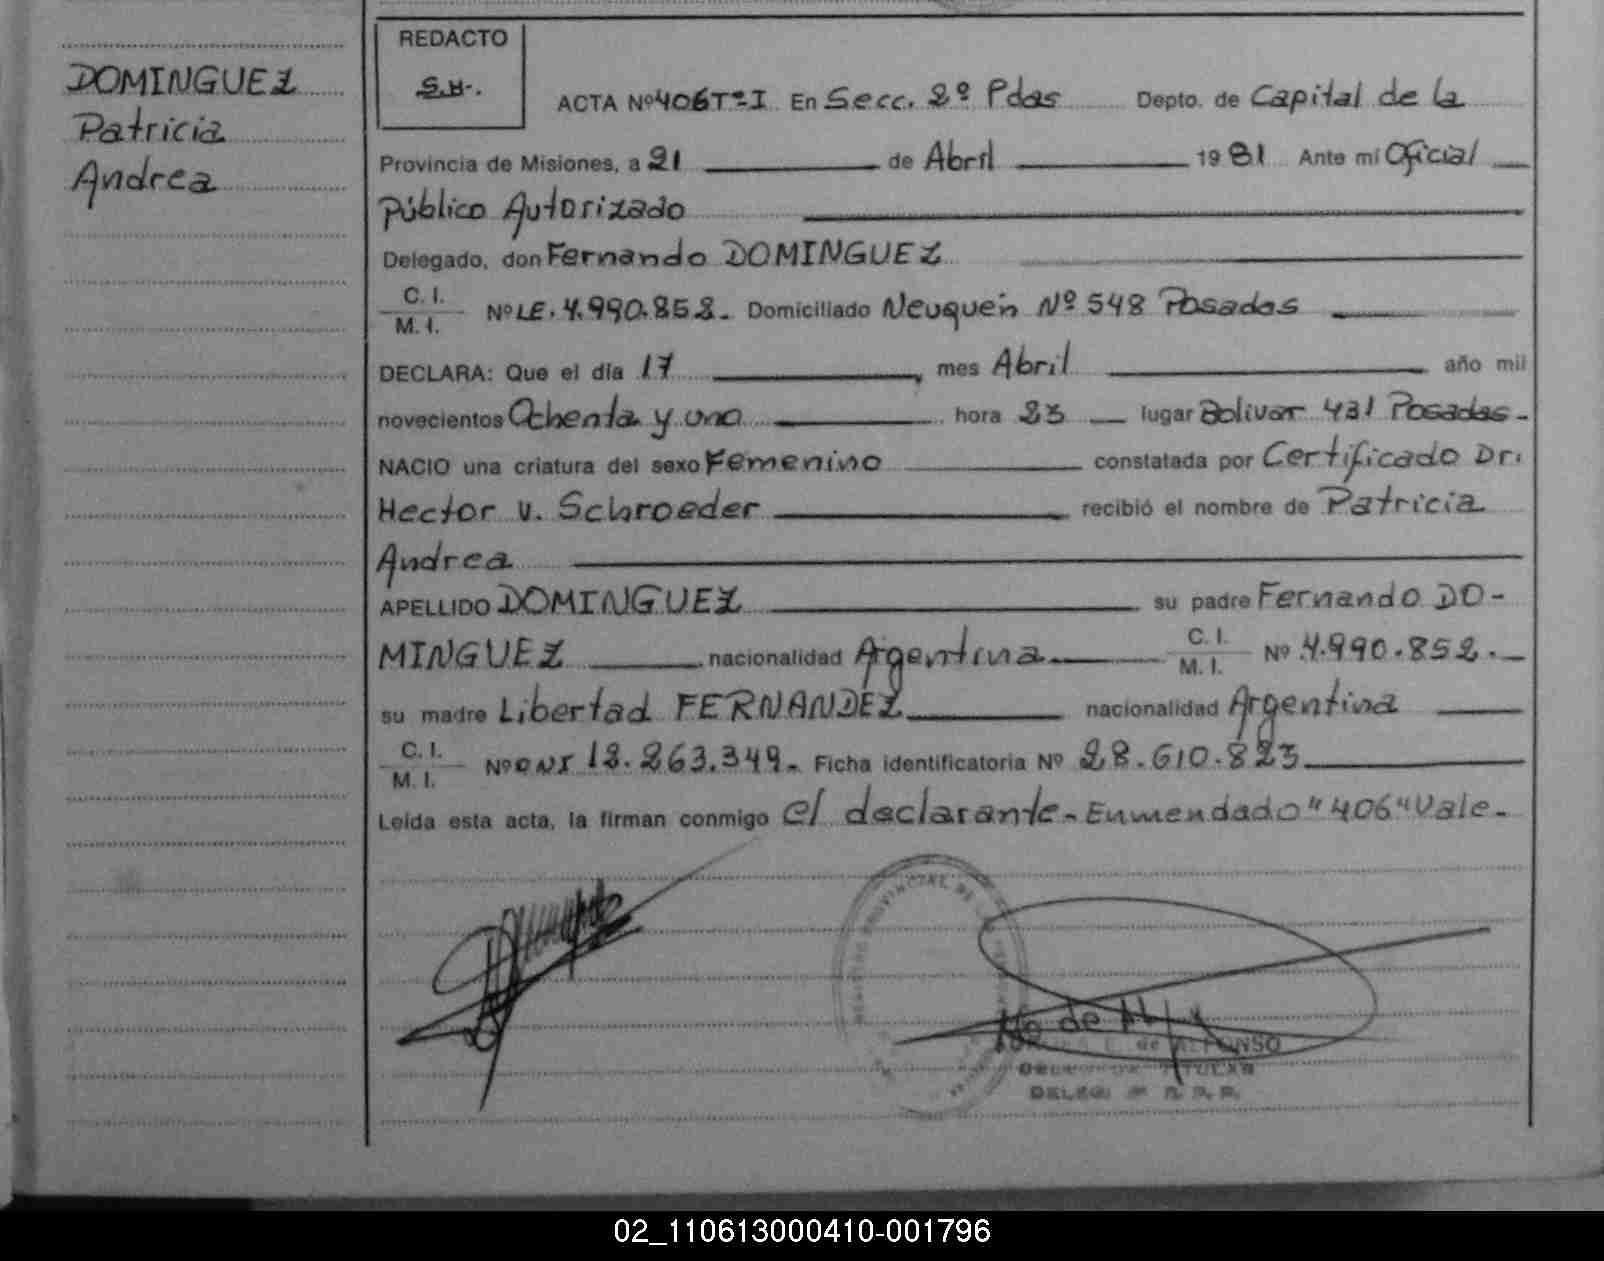 DOMINGUEZ
Patricia
Andrea
REDACTO
S.H-.
ACTA Nº 406 Tº I En Secc. 2º Pdas Depto. de Capital de la
Provincia de Misiones, a 21 de Abril 1981 Ante mi Oficial
Público Autorizado
Delegado, don Fernando DOMINGUEZ
C. I.
M. I. Nº LE. 4.990.852. Domiciliado Neuquén Nº 548 Posadas
DECLARA: Que el día 17, mes Abril año mil
novecientos Ochenta y uno hora 23 lugar Bolivar 431 Posadas-
NACIO una criatura del sexo Femenino constatada por Certificado Dr.
Hector V. Schroeder recibió el nombre de Patricia
Andrea
APELLIDO DOMINGUEZ su padre Fernando DO-
MINGUEZ nacionalidad Argentina C. I. M. I. Nº 4.990.852.
su madre Libertad FERNANDEZ nacionalidad Argentina
C. I.
M. I. Nº DNI 12.263.349. Ficha identificatoria Nº 28.610.823
Leída esta acta, la firman conmigo el declarante- Enmendado "406" Vale-
REGISTRO PROVINCIAL DE
de ALFONSO
TITULAR
02_110613000410-001796